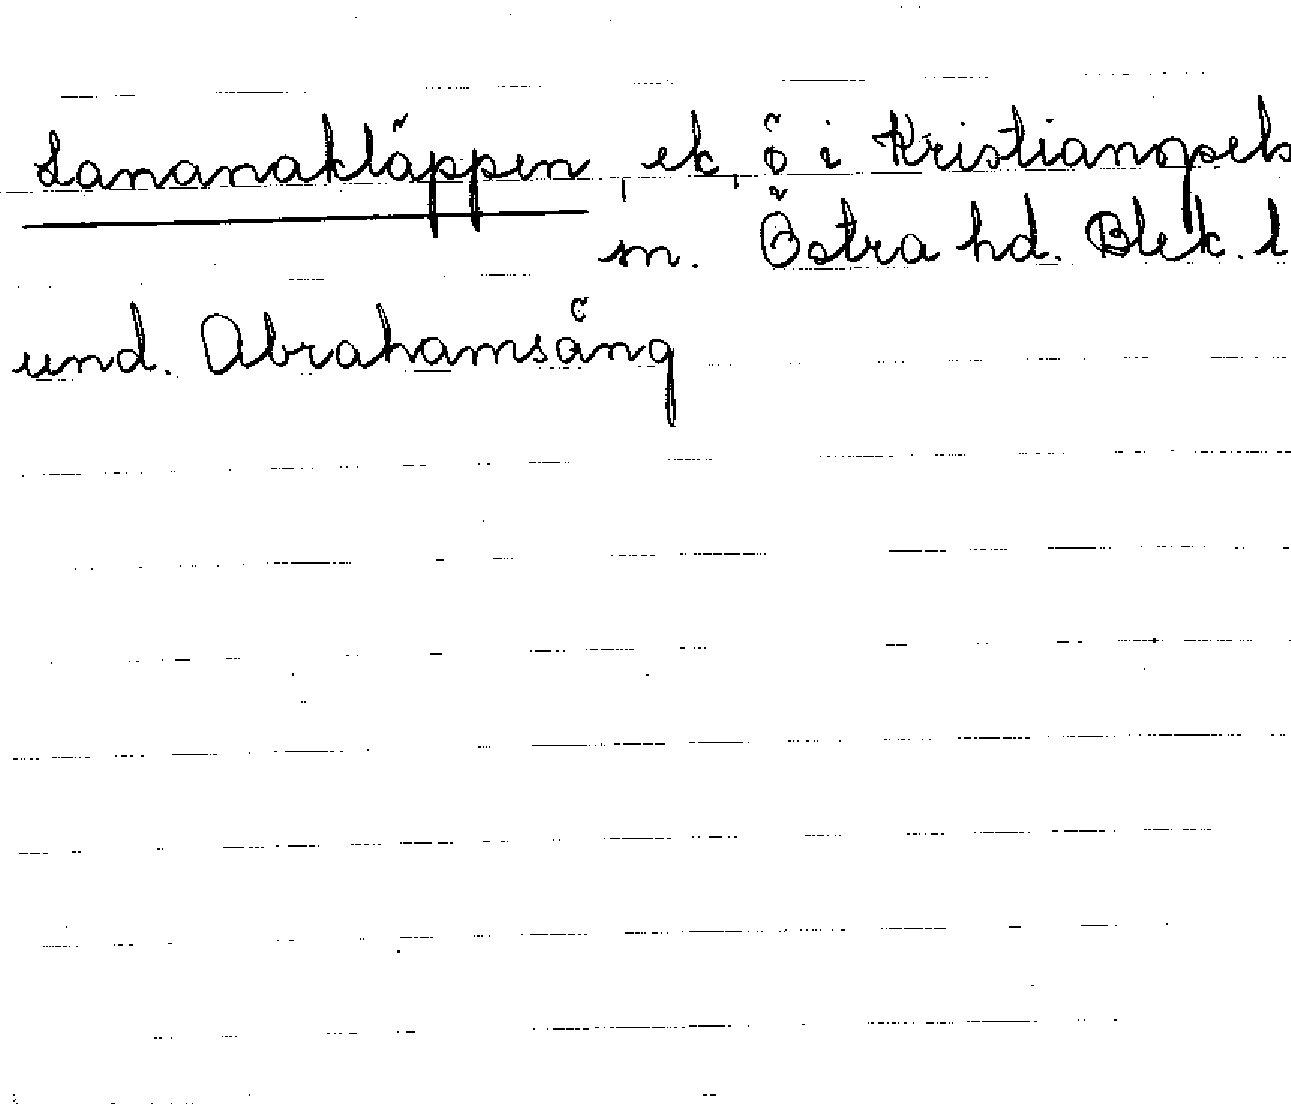 Lananakläppen, ek, ö i Kristianopels
sn. Östra hd. Blek. l
und. Abrahamsäng